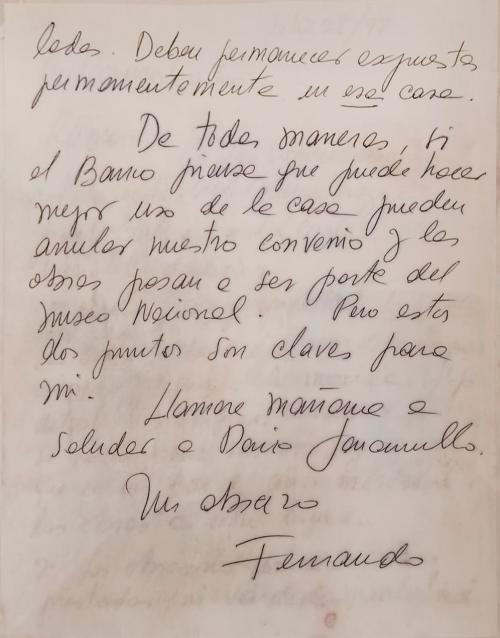 ladas. Deben permanecer expuestas
permanentemente en esa casa.
De todas maneras, si
el Banco piensa que puede hacer
mejor uso de la casa pueden
anular nuestro convenio y las
obras pasan a ser parte del
Museo Nacional. Pero estos
dos puntos son claves para
mi.
Llamare mañana a
saludar a Dario Jaramillo.
Un abrazo
Fernando